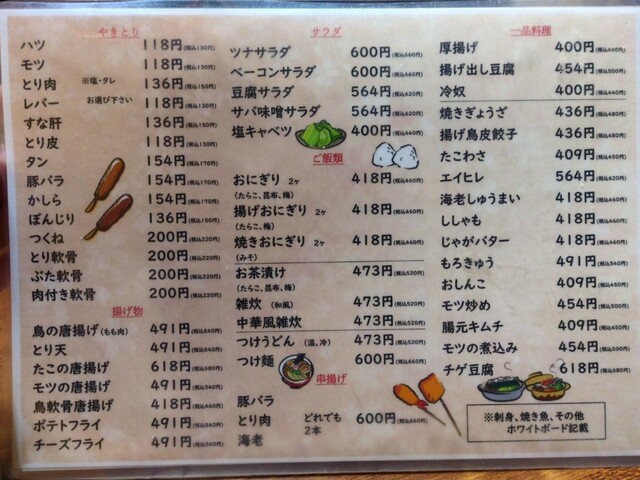 やきとり
ハツ 118円(税込130円)
モツ 118円(税込130円)
とり肉 ※塩・タレ 136円(税込150円)
レバー お選び下さい 118円(税込130円)
すな肝 136円(税込150円)
とり皮 118円(税込130円)
タン 154円(税込170円)
豚バラ 154円(税込170円)
かしら 154円(税込170円)
ぼんじり 136円(税込150円)
つくね 200円(税込220円)
とり軟骨 200円(税込220円)
ぶた軟骨 200円(税込220円)
肉付き軟骨 200円(税込220円)
揚げ物
鳥の唐揚げ(もも肉) 491円(税込540円)
とり天 491円(税込540円)
たこの唐揚げ 618円(税込680円)
モツの唐揚げ 491円(税込540円)
鳥軟骨唐揚げ 418円(税込460円)
ポテトフライ 491円(税込540円)
チーズフライ 491円(税込540円)
サラダ
ツナサラダ 600円(税込660円)
ベーコンサラダ 600円(税込660円)
豆腐サラダ 564円(税込620円)
サバ味噌サラダ 564円(税込620円)
塩キャベツ 400円(税込440円)
ご飯類
おにぎり 2ヶ 418円(税込460円)
(たらこ、昆布、梅)
揚げおにぎり 2ヶ 418円(税込460円)
(たらこ、梅)
焼きおにぎり 2ヶ 418円(税込460円)
(みそ)
お茶漬け 473円(税込520円)
(たらこ、昆布、梅)
雑炊 (和風) 473円(税込520円)
中華風雑炊 473円(税込520円)
つけうどん (温、冷) 473円(税込520円)
つけ麺 600円(税込660円)
串揚げ
豚バラ
とり肉 どれでも2本 600円(税込660円)
海老
一品料理
厚揚げ 400円(税込440円)
揚げ出し豆腐 454円(税込500円)
冷奴 400円(税込440円)
焼きぎょうざ 436円(税込480円)
揚げ鳥皮餃子 436円(税込480円)
たこわさ 409円(税込450円)
エイヒレ 564円(税込620円)
海老しゅうまい 418円(税込460円)
ししゃも 418円(税込460円)
じゃがバター 418円(税込460円)
もろきゅう 491円(税込540円)
おしんこ 409円(税込450円)
モツ炒め 454円(税込500円)
腸元キムチ 409円(税込450円)
モツの煮込み 454円(税込500円)
チゲ豆腐 618円(税込680円)
※刺身、焼き魚、その他
ホワイトボード記載